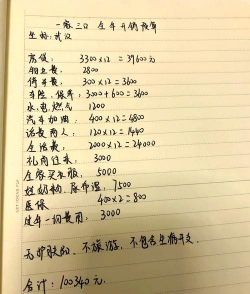 一家三口 全年开销预算
坐标:武汉
房贷: 3300×12=39600元
物业费: 2800
停车费: 300×12=3600
车险、保养: 3000+600=3600
水,电,燃气 1200
汽车加油: 400×12=4800
话费两人: 120×12=1440
生活费: 2000×12=24000
礼尚往来: 3000
全家买衣服, 5000
娃奶粉、尿布湿, 7500
医保 400×2=800
过年一切费用: 3000
无护肤品、不旅游、不包含生病开支、
合计:100340元.